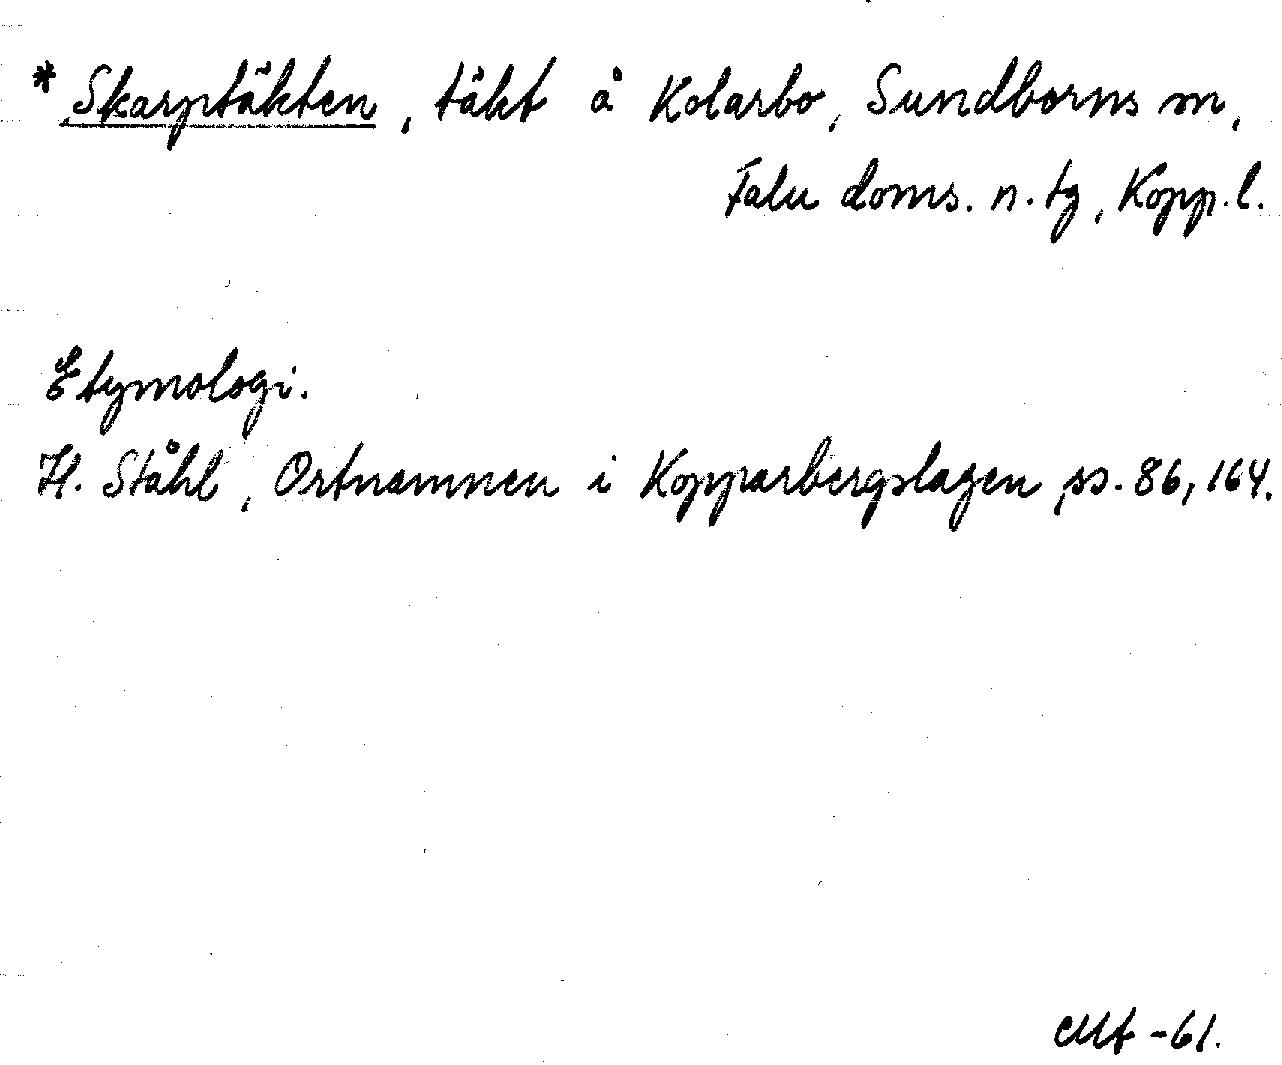 * Skarptäkten, täkt å Kolarbo, Sundborns sn,
Falu doms. n. tg, Kopp. l.
Etymologi.
H. Ståhl, Ortnamnen i Kopparbergslagen, ss. 86, 164.
-61.